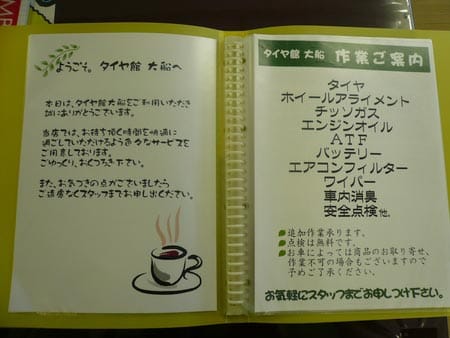 ようこそ。タイヤ館 大船へ
本日は、タイヤ館大船をご利用いただき
誠にありがとうございます。
当店では、お待ち頂く時間を快適に
過ごしていただけるよう色々なサービスを
ご用意しております。
ごゆっくり、おくつろぎ下さい。
また、お気づきの点がございましたら、
ご遠慮なくスタッフまでお申し出ください。
タイヤ館 大船 作業ご案内
タイヤ
ホイールアライメント
チッソガス
エンジンオイル
ATF
バッテリー
エアコンフィルター
ワイパー
車内消臭
安全点検他。
追加作業承ります。
点検は無料です。
お車によっては商品のお取り寄せ、
作業不可の場合もございますので
予めご了承ください。
お気軽にスタッフまでお申しつけ下さい。